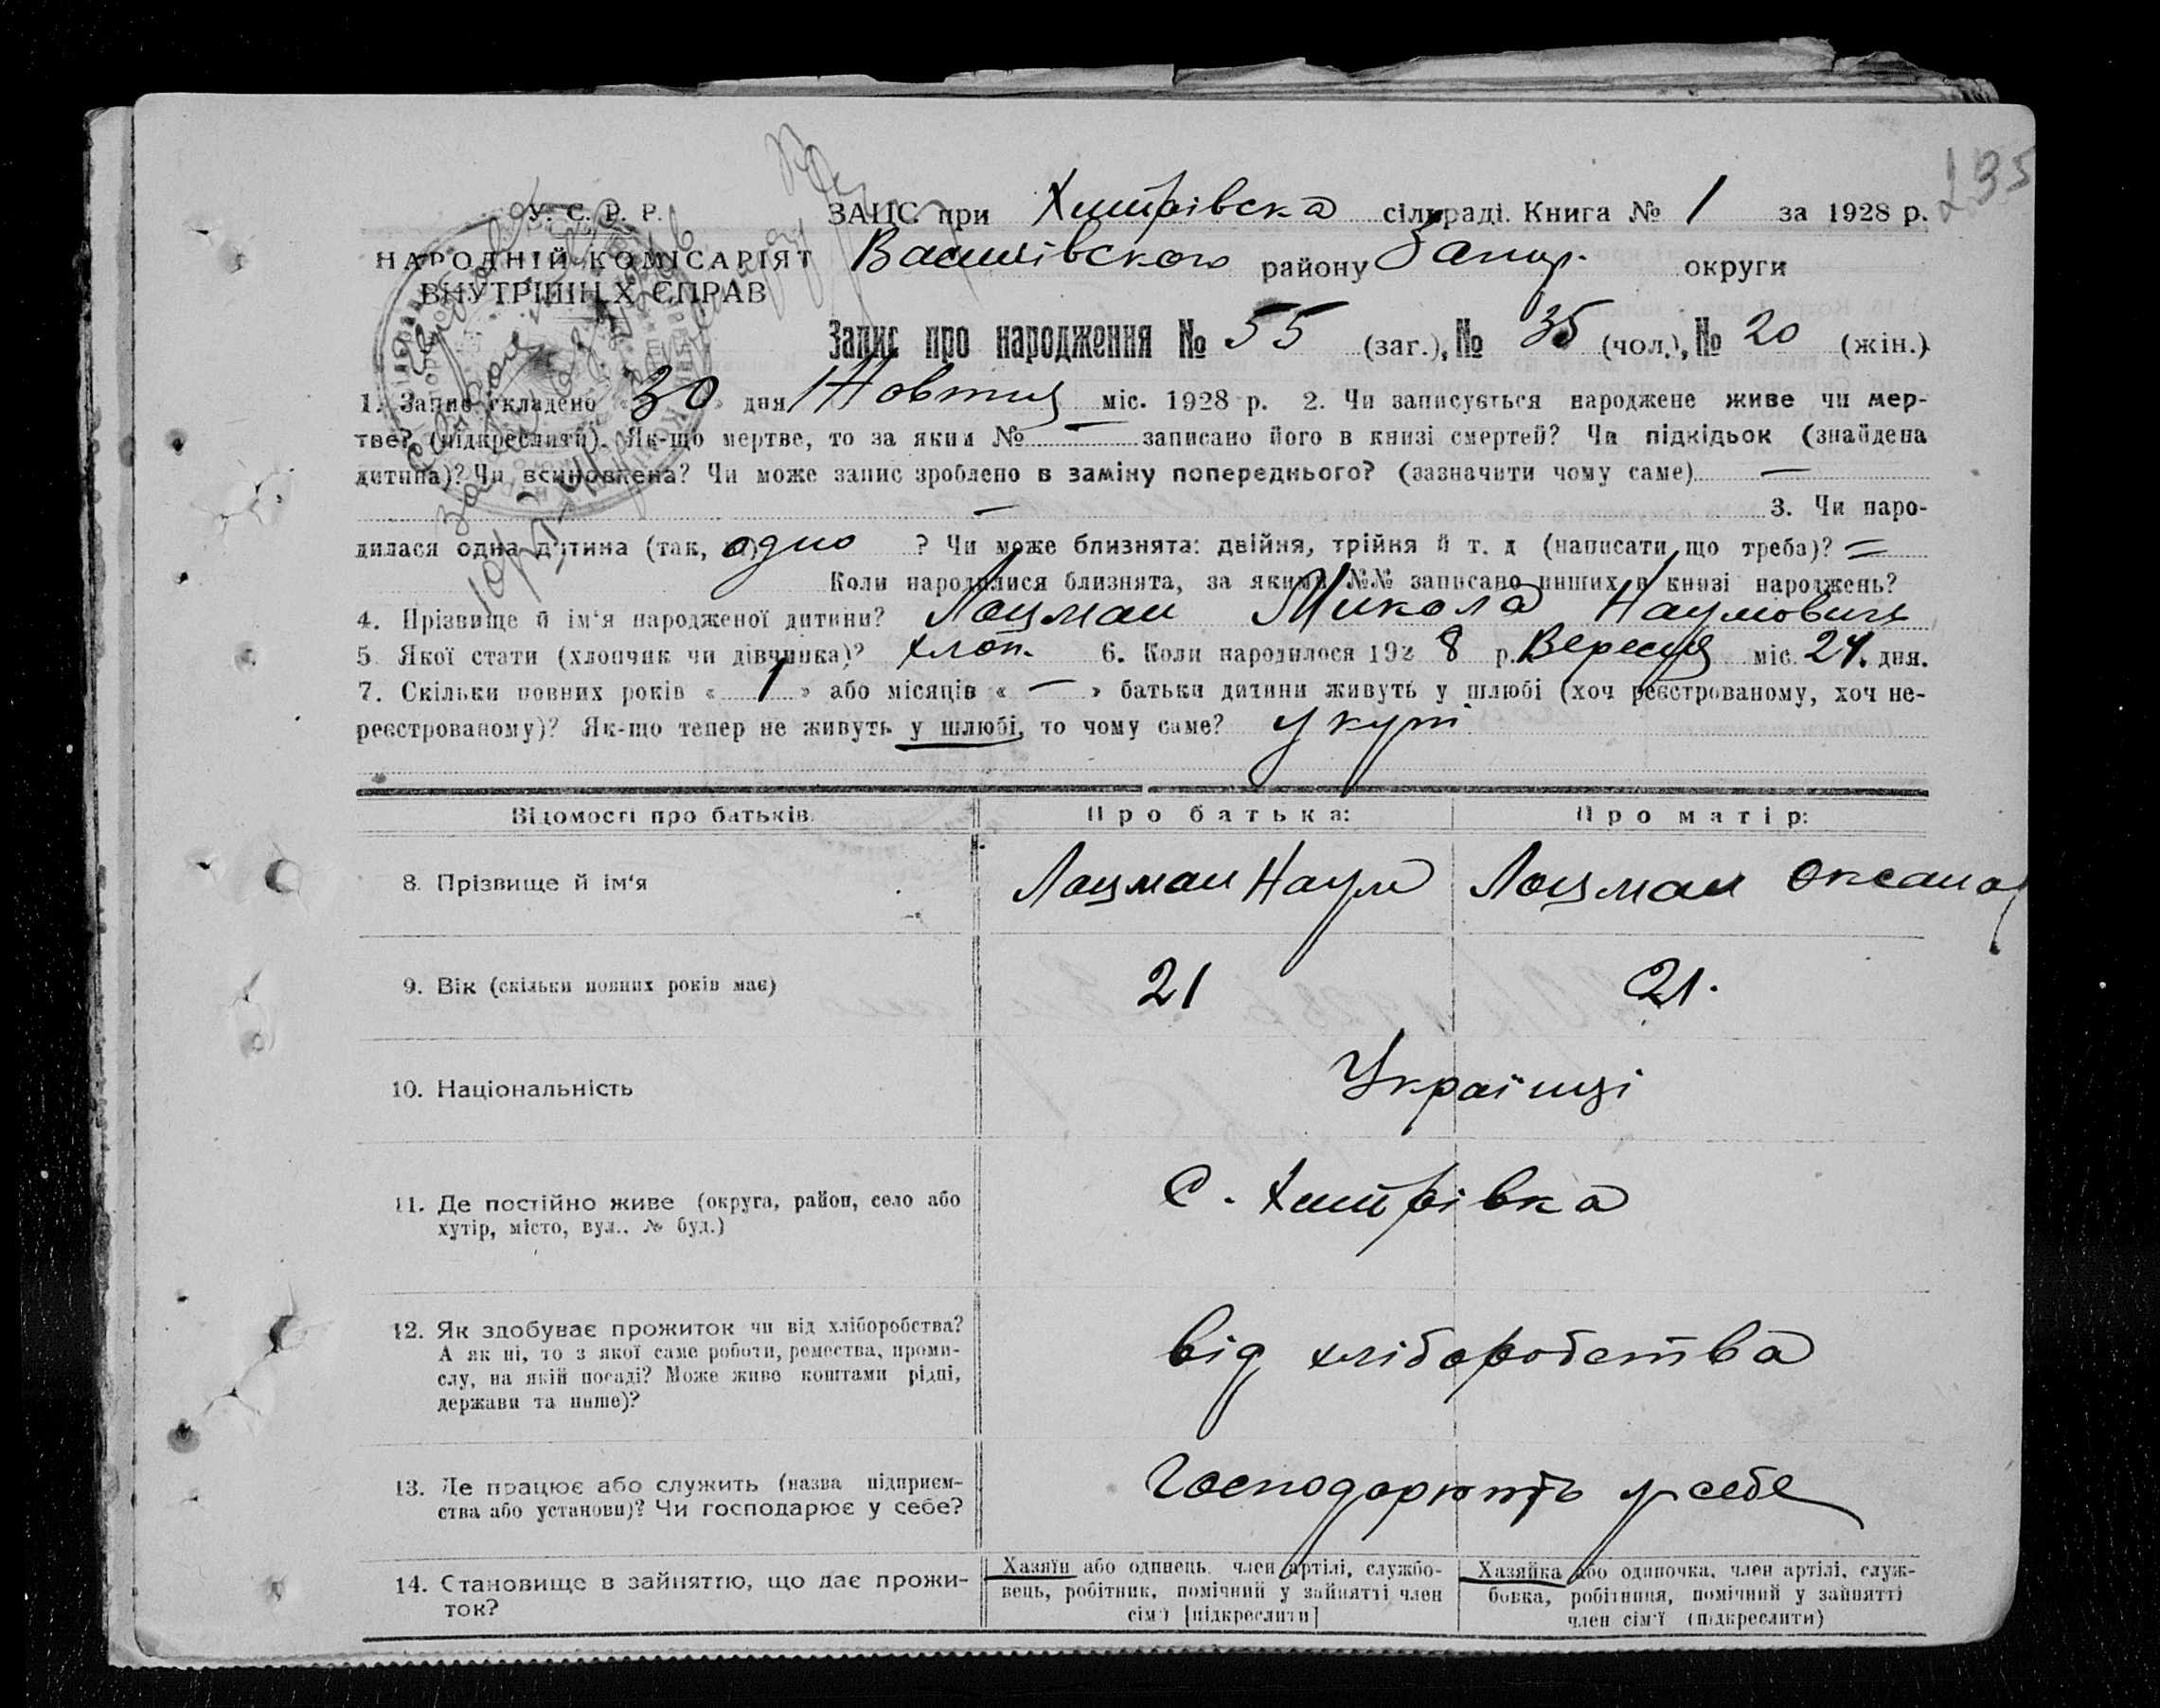 235
У. С. Р. Р.
НАРОДНІЙ КОМІСАРІЯТ
ВНУТРІШНІХ СПРАВ
ЗАПИС при Хитрівска сільраді. Книга № 1 за 1928 р.
Василівского району Запор. округи
Запис про народження № 55 (заг.), № 35 (чол.), № 20 (жін.)
1. Запис складено «30» дня Жовтня міс. 1928 р. 2. Чи записується народжене живе чи мер-
тве? (підкреслити). Як-що мертве, то за яким № — записано його в книзі смертей? Чи підкідьок (знайдена
дитина)? Чи всиновлена? Чи може запис зроблено в заміну попереднього? (зазначити чому саме) —
— 3. Чи наро-
дилася одна дитина (так, ні) одно ? Чи може близнята: двійня, трійня й т. д (написати, що треба)? =
Коли народилися близнята, за якими №№ записано инших в книзі народжень?
4. Прізвище й ім'я народженої дитини? Лоцман Микола Наумович
5. Якої стати (хлопчик чи дівчинка)? хлоп. 6. Коли народилося 1928 р. Вересня міс. 24. дня.
7. Скільки повних років «1» або місяців «—» батьки дитини живуть у шлюбі (хоч реєстрованому, хоч не-
реєстрованому)? Як-що тепер не живуть у шлюбі, то чому саме? у купі
Відомості про батьків. Про батька: Про матір:
8. Прізвище й ім'я Лоцман Наум Лоцман Оксана
9. Вік (скільки повних років має) 21 21.
10. Національність Українці
11. Де постійно живе (округа, район, село або
хутір, місто, вул., № буд.) с. Хитрівка
12. Як здобуває прожиток чи від хліборобства?
А як ні, то з якої саме роботи, ремества, проми-
слу, на якій посаді? Може живе коштами рідні,
держави та инше)? від хліборобства
13. Де працює або служить (назва підприєм-
ства або установи)? Чи господарює у себе? Господарюють у себе
14. Становище в зайняттю, що дає прожи-
ток?
Хазяїн або одинець, член артілі, службо-
вець, робітник, помічний у зайнятті член
сім'ї [підкреслити]
Хазяйка або одиночка, член артілі, служ-
бовка, робітниця, помічний у зайнятті
член сім'ї (підкреслити)